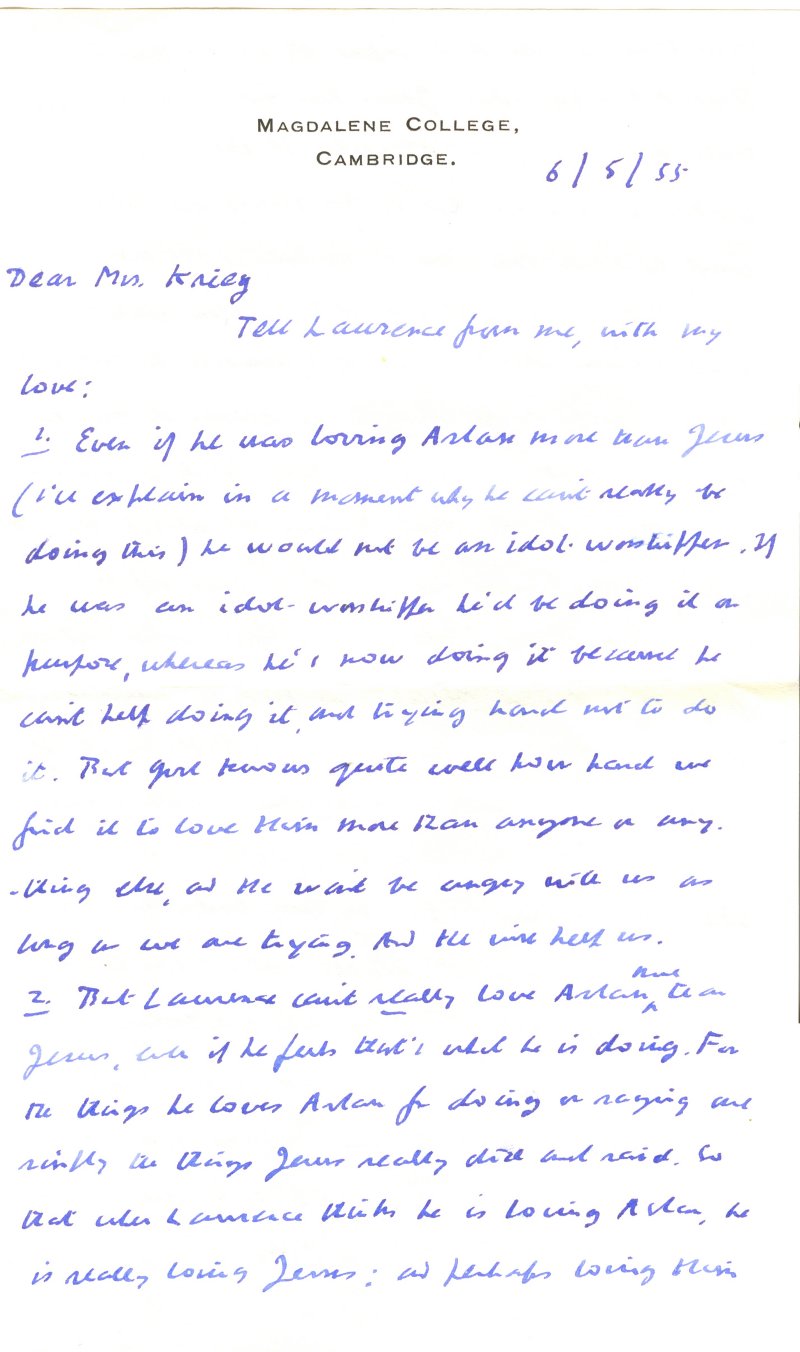 MAGDALENE COLLEGE,
CAMBRIDGE.
6/5/55
Dear Mrs. Krieg
Tell Laurence from me, with my
love:
1. Even if he was loving Aslan more than Jesus
(I'll explain in a moment why he can't really be
doing this) he would not be an idol-worshipper. If
he was an idol-worshipper he'd be doing it on
purpose, whereas he's now doing it because he
can't help doing it, and trying hard not to do
it. But God knows quite well how hard we
find it to love Him more than anyone or any-
-thing else, and He won't be angry with us as
long as we are trying. And He will help us.
2. But Laurence can't really love Aslan more than
Jesus, even if he feels that's what he is doing. For
the things he loves Aslan for doing or saying are
simply the things Jesus really did and said. So
that when Laurence thinks he is loving Aslan, he
is really loving Jesus; and perhaps loving Him